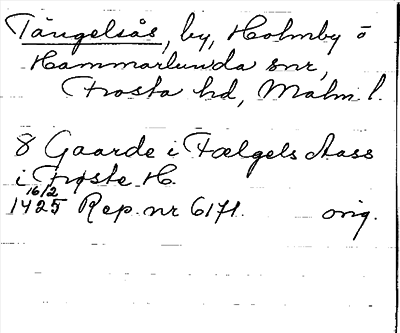 Tängelsås, by, Holmby o
Hammarlunda snr,
Frosta hd, Malm. l.
8 Gaarde i Tælgels Aass
i Froste H.
16/2
1425 Rep. nr 6171. orig.